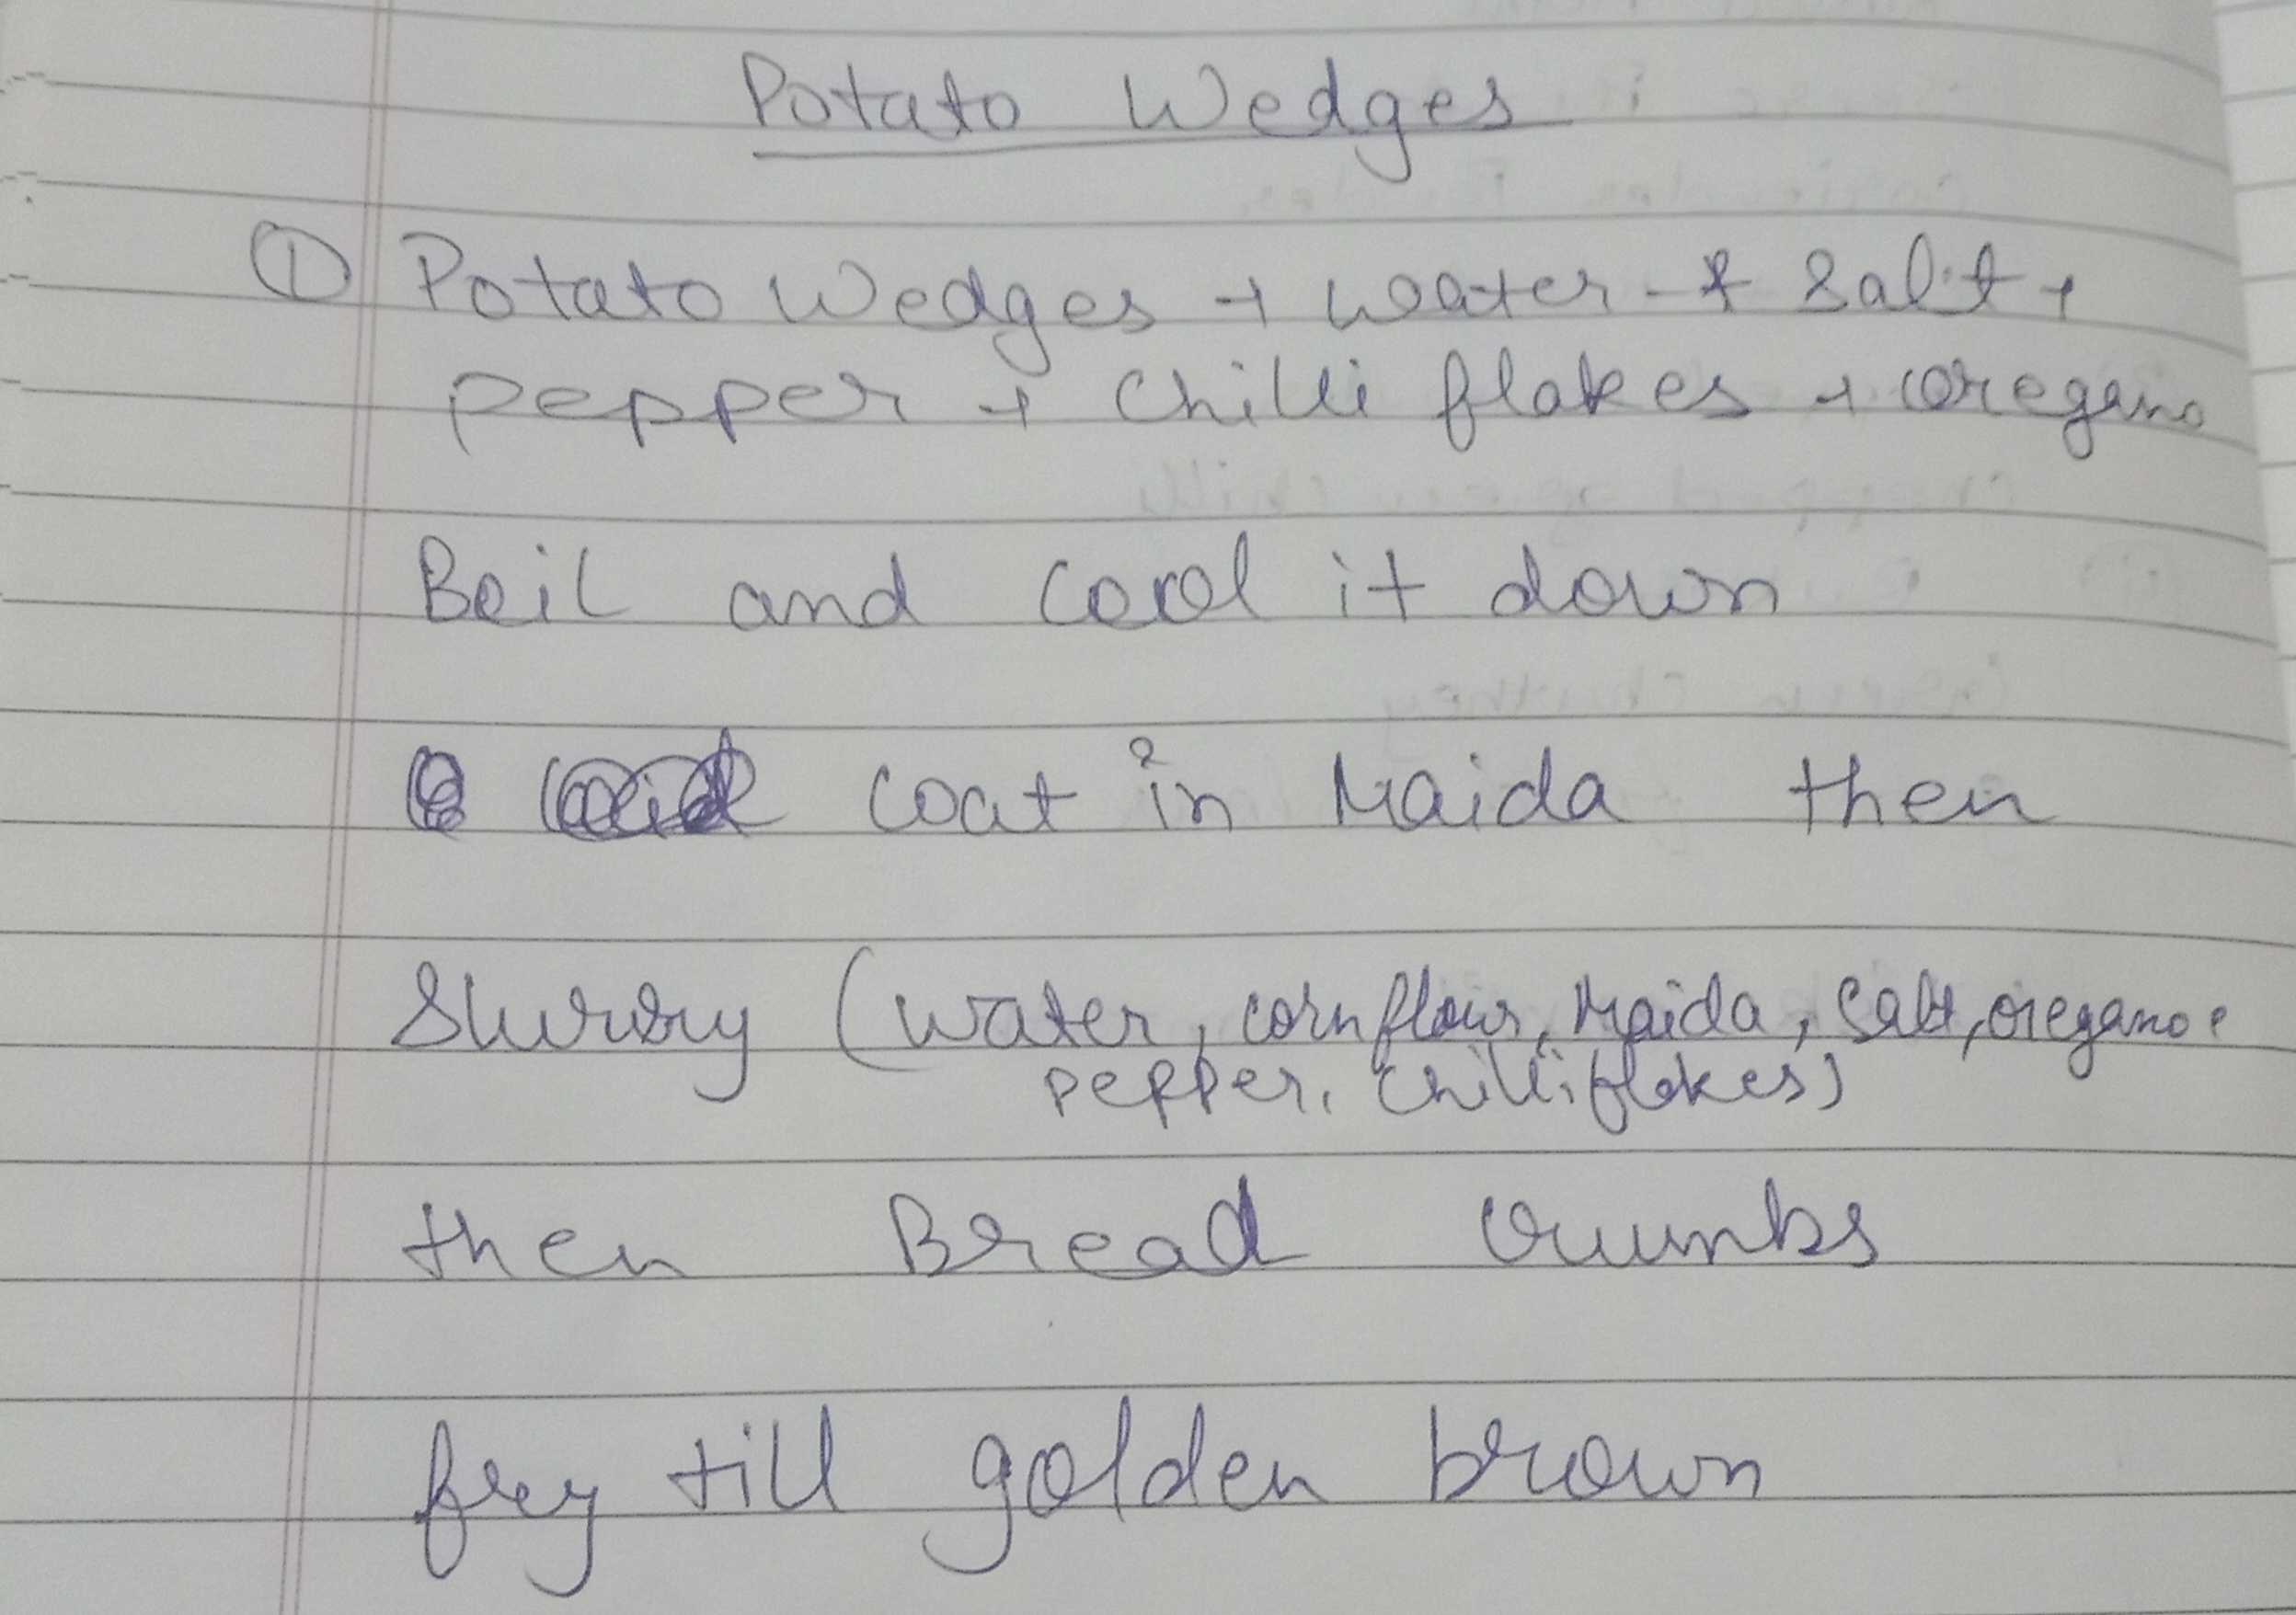 Potato Wedges
① Potato Wedges + Water + Salt +
pepper + Chilli flakes + oregano
Boil and Cool it down
coat in Maida then
Slurry (water, cornflour, Maida, Salt, oregano
pepper, chilli flakes)
then Bread crumbs
fry till golden brown